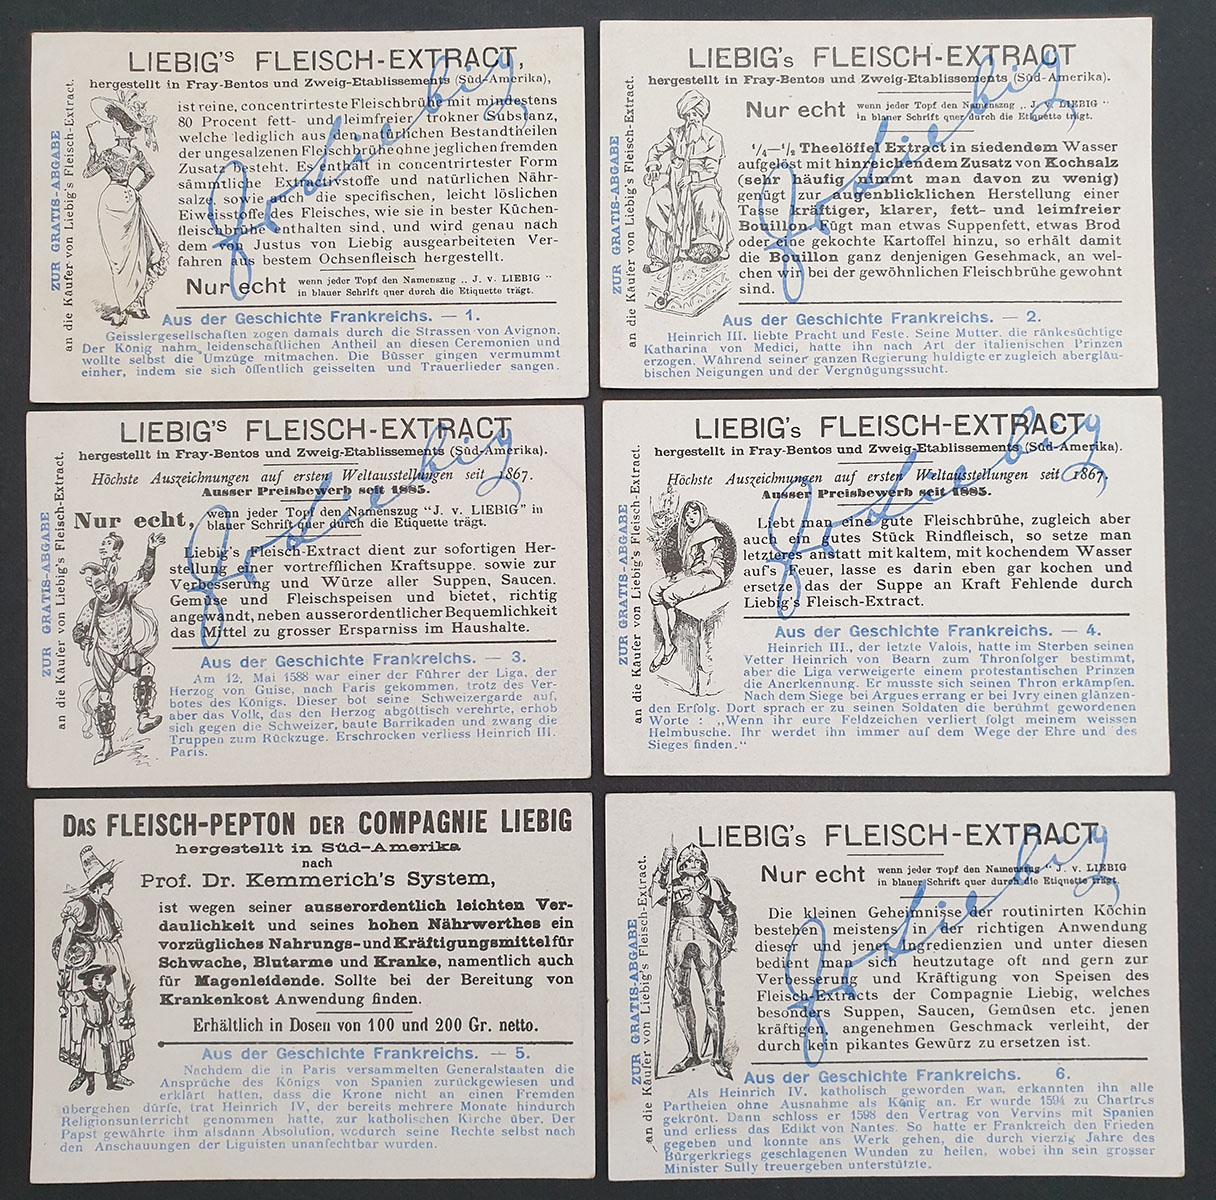 LIEBIG's FLEISCH-EXTRACT,
hergestellt in Fray-Bentos und Zweig-Etablissements (Süd-Amerika),
ist reine, concentrirteste Fleischbrühe mit mindestens
80 Procent fett- und leimfreier trokner Substanz,
welche lediglich aus den natürlichen Bestandtheilen
der ungesalzenen Fleischbrühe ohne jeglichen fremden
Zusatz besteht. Es enthält in concentrirtester Form
sämmtliche Extractivstoffe und natürlichen Nähr-
salze, sowie auch die specifischen, leicht löslichen
Eiweisstoffe des Fleisches, wie sie in bester Küchen-
fleischbrühe enthalten sind, und wird genau nach
dem von Justus von Liebig ausgearbeiteten Ver-
fahren aus bestem Ochsenfleisch hergestellt.
Nur echt wenn jeder Topf den Namenszug „ J. v. LIEBIG "
in blauer Schrift quer durch die Etiquette trägt.
ZUR GRATIS-ABGABE
an die Käufer von Liebig's Fleisch-Extract.
J v Liebig
Aus der Geschichte Frankreichs. — 1.
Geisslergesellschaften zogen damals durch die Strassen von Avignon.
Der König nahm leidenschaftlichen Antheil an diesen Ceremonien und
wollte selbst die Umzüge mitmachen. Die Büsser gingen vermummt
einher, indem sie sich öffentlich geisselten und Trauerlieder sangen.
LIEBIG's FLEISCH-EXTRACT
hergestellt in Fray-Bentos und Zweig-Etablissements (Süd-Amerika).
Nur echt wenn jeder Topf den Namenszug „ J. v. LIEBIG "
in blauer Schrift quer durch die Etiquette trägt.
¼—½ Theelöffel Extract in siedendem Wasser
aufgelöst mit hinreichendem Zusatz von Kochsalz
(sehr häufig nimmt man davon zu wenig)
genügt zur augenblicklichen Herstellung einer
Tasse kräftiger, klarer, fett- und leimfreier
Bouillon. Fügt man etwas Suppenfett, etwas Brod
oder eine gekochte Kartoffel hinzu, so erhält damit
die Bouillon ganz denjenigen Geschmack, an wel-
chen wir bei der gewöhnlichen Fleischbrühe gewohnt
sind.
ZUR GRATIS-ABGABE
an die Käufer von Liebig's Fleisch-Extract.
J v Liebig
Aus der Geschichte Frankreichs. — 2.
Heinrich III. liebte Pracht und Feste. Seine Mutter, die ränkesüchtige
Katharina von Medici, hatte ihn nach Art der italienischen Prinzen
erzogen. Während seiner ganzen Regierung huldigte er zugleich abergläu-
bischen Neigungen und der Vergnügungssucht.
LIEBIG's FLEISCH-EXTRACT
hergestellt in Fray-Bentos und Zweig-Etablissements (Süd-Amerika).
Höchste Auszeichnungen auf ersten Weltausstellungen seit 1867.
Ausser Preisbewerb seit 1885.
Nur echt, wenn jeder Topf den Namenszug "J. v. LIEBIG" in
blauer Schrift quer durch die Etiquette trägt.
Liebig's Fleisch-Extract dient zur sofortigen Her-
stellung einer vortrefflichen Kraftsuppe. sowie zur
Verbesserung und Würze aller Suppen, Saucen.
Gemüse und Fleischspeisen und bietet, richtig
angewandt, neben ausserordentlicher Bequemlichkeit
das Mittel zu grosser Ersparniss im Haushalte.
ZUR GRATIS-ABGABE
an die Käufer von Liebig's Fleisch-Extract.
J v Liebig
Aus der Geschichte Frankreichs. — 3.
Am 12. Mai 1588 war einer der Führer der Liga, der
Herzog von Guise, nach Paris gekommen, trotz des Ver-
botes des Königs. Dieser bot seine Schweizergarde auf,
aber das Volk, das den Herzog abgöttisch verehrte, erhob
sich gegen die Schweizer, baute Barrikaden und zwang die
Truppen zum Rückzuge. Erschrocken verliess Heinrich III.
Paris.
LIEBIG's FLEISCH-EXTRACT
hergestellt in Fray-Bentos und Zweig-Etablissements (Süd-Amerika).
Höchste Auszeichnungen auf ersten Weltausstellungen seit 1867.
Ausser Preisbewerb seit 1885.
Liebt man eine gute Fleischbrühe, zugleich aber
auch ein gutes Stück Rindfleisch, so setze man
letzteres anstatt mit kaltem, mit kochendem Wasser
auf's Feuer, lasse es darin eben gar kochen und
ersetze das der Suppe an Kraft Fehlende durch
Liebig's Fleisch-Extract.
ZUR GRATIS-ABGABE
an die Käufer von Liebig's Fleisch-Extract.
J v Liebig
Aus der Geschichte Frankreichs. — 4.
Heinrich III., der letzte Valois, hatte im Sterben seinen
Vetter Heinrich von Bearn zum Thronfolger bestimmt,
aber die Liga verweigerte einem protestantischen Prinzen
die Anerkennung. Er musste sich seinen Thron erkämpfen.
Nach dem Siege bei Argues errang er bei Ivry einen glänzen-
den Erfolg. Dort sprach er zu seinen Soldaten die berühmt gewordenen
Worte : „Wenn ihr eure Feldzeichen verliert folgt meinem weissen
Helmbusche. Ihr werdet ihn immer auf dem Wege der Ehre und des
Sieges finden."
DAS FLEISCH-PEPTON DER COMPAGNIE LIEBIG
hergestellt in Süd-Amerika
nach
Prof. Dr. Kemmerich's System,
ist wegen seiner ausserordentlich leichten Ver-
daulichkeit und seines hohen Nährwerthes ein
vorzügliches Nahrungs- und Kräftigungsmittel für
Schwache, Blutarme und Kranke, namentlich auch
für Magenleidende. Sollte bei der Bereitung von
Krankenkost Anwendung finden.
Erhältlich in Dosen von 100 und 200 Gr. netto.
Aus der Geschichte Frankreichs. — 5.
Nachdem die in Paris versammelten Generalstaaten die
Ansprüche des Königs von Spanien zurückgewiesen und
erklärt hatten, dass die Krone nicht an einen Fremden
übergehen dürfe, trat Heinrich IV, der bereits mehrere Monate hindurch
Religionsunterricht genommen hatte, zur katholischen Kirche über. Der
Papst gewährte ihm alsdann Absolution, wodurch seine Rechte selbst nach
den Anschauungen der Liguisten unanfechtbar wurden.
LIEBIG's FLEISCH-EXTRACT
Nur echt wenn jeder Topf den Namenszug " J. v. LIEBIG
in blauer Schrift quer durch die Etiquette trägt.
Die kleinen Geheimnisse der routinirten Köchin
bestehen meistens in der richtigen Anwendung
dieser und jener Ingredienzien und unter diesen
bedient man sich heutzutage oft und gern zur
Verbesserung und Kräftigung von Speisen des
Fleisch-Extracts der Compagnie Liebig, welches
besonders Suppen, Saucen, Gemüsen etc. jenen
kräftigen, angenehmen Geschmack verleiht, der
durch kein pikantes Gewürz zu ersetzen ist.
ZUR GRATIS-ABGABE
an die Käufer von Liebig's Fleisch-Extract.
J v Liebig
Aus der Geschichte Frankreichs. 6.
Als Heinrich IV. katholisch geworden war, erkannten ihn alle
Partheien ohne Ausnahme als König an. Er wurde 1594 zu Chartres
gekrönt. Dann schloss er 1598 den Vertrag von Vervins mit Spanien
und erliess das Edikt von Nantes. So hatte er Frankreich den Frieden
gegeben und konnte ans Werk gehen, die durch vierzig Jahre des
Bürgerkriegs geschlagenen Wunden zu heilen, wobei ihn sein grosser
Minister Sully treuergeben unterstützte.